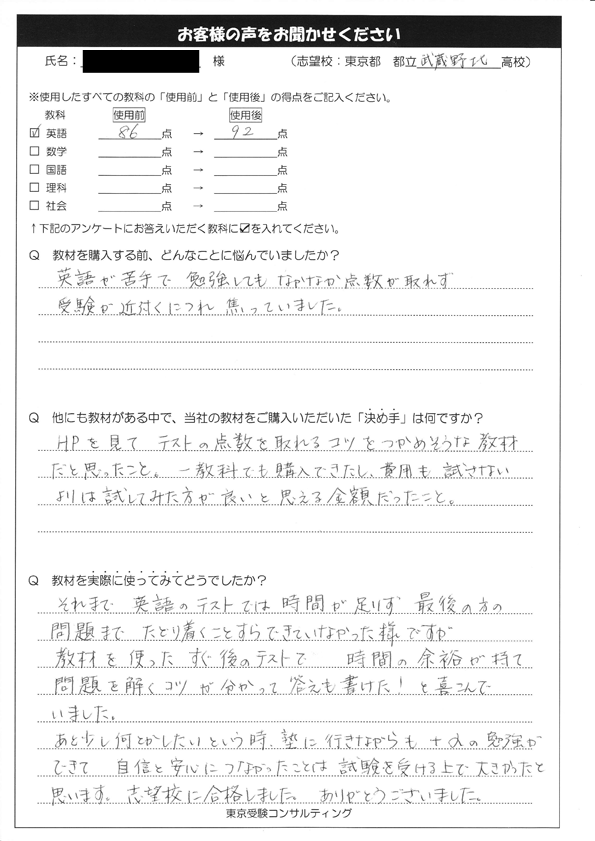 お客様の声をお聞かせください
氏名： 様 （志望校：東京都 都立武蔵野北高校）
※使用したすべての教科の「使用前」と「使用後」の得点をご記入ください。
教科 使用前 使用後
☑ 英語 86点 → 92点
□ 数学 点 → 点
□ 国語 点 → 点
□ 理科 点 → 点
□ 社会 点 → 点
↑下記のアンケートにお答えいただく教科に☑を入れてください。
Q 教材を購入する前、どんなことに悩んでいましたか？
英語が苦手で 勉強しても なかなか点数が取れず
受験が近付くにつれ 焦っていました。
Q 他にも教材がある中で、当社の教材をご購入いただいた「決め手」は何ですか？
HPを見て テストの点数を取れるコツをつかめそうな教材
だと思ったこと。一教科でも購入できたし、費用も 試さない
よりは試してみた方が良いと思える金額だったこと。
Q 教材を実際に使ってみてどうでしたか？
それまで 英語のテストでは時間が足りず 最後の方の
問題まで たどり着くことすらできていなかった様ですが
教材を使った すぐ後のテストで 時間の余裕が持て
問題を解くコツが分かって 答えも書けた！と喜こんで
いました。
あと少し何とかしたいという時、塾に行きながらも +αの勉強が
できて 自信と安心につながったことは 試験を受ける上で大きかったと
思います。志望校に合格しました。ありがとうございました。
東京受験コンサルティング